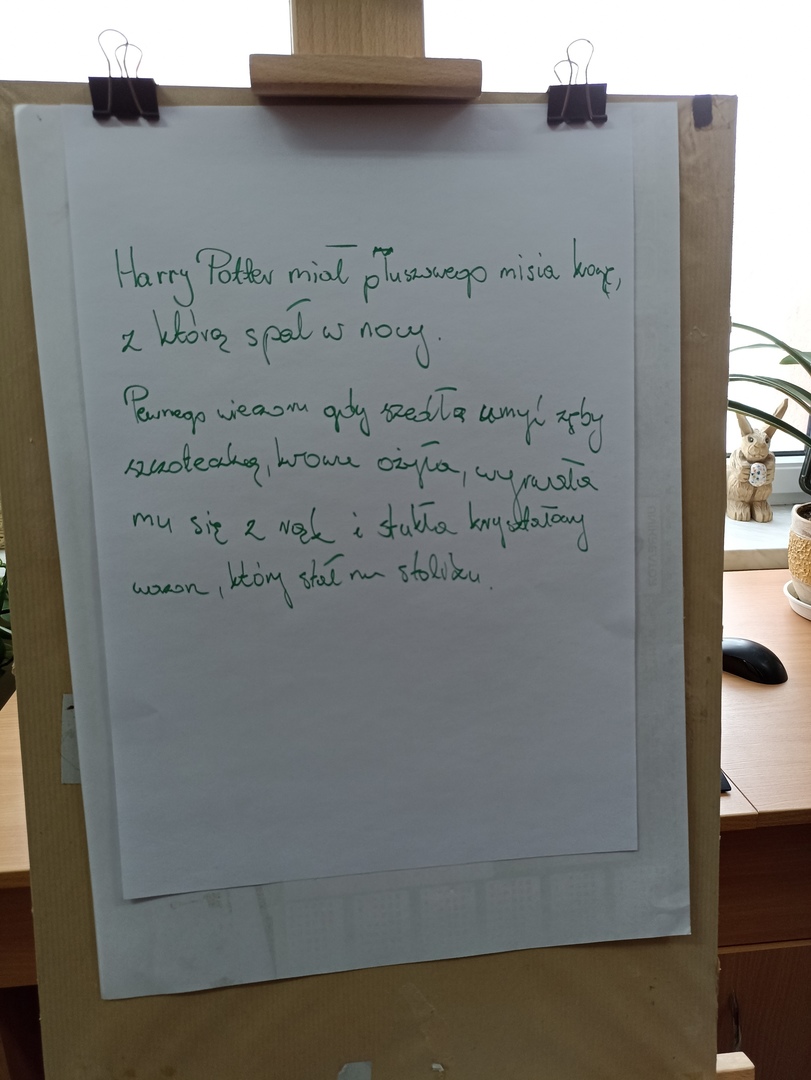 Harry Potter miał pluszowego misia krowę,
z którą spał w nocy.
Pewnego wieczoru gdy szedł umyć zęby
szczoteczką, krowa ożyła, wyrwała
mu się z rąk i stukła kryształowy
wazon, który stał na stoliku.